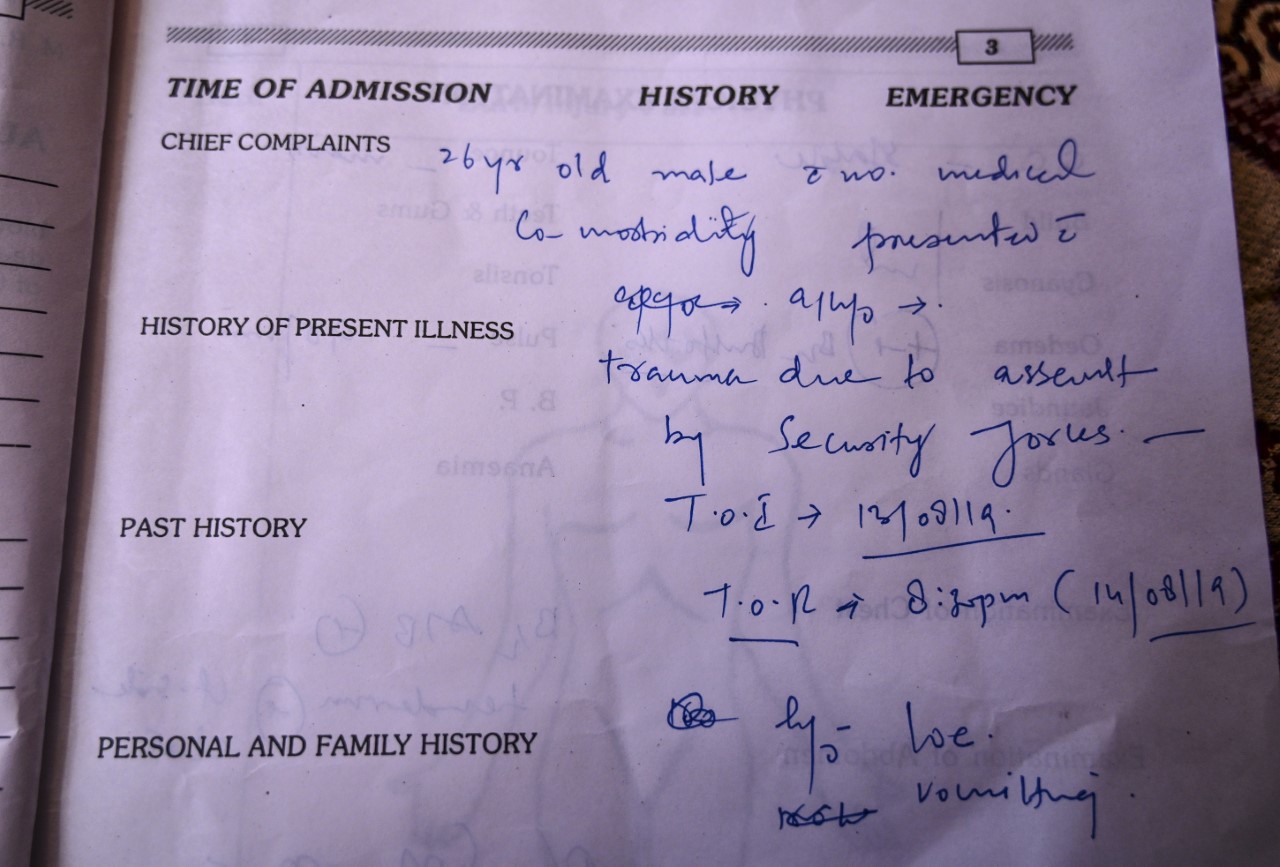 3
TIME OF ADMISSION HISTORY EMERGENCY
CHIEF COMPLAINTS 26 yr old male c̄ no. medical
Co-morbidity presented c̄
a/h/o →.
HISTORY OF PRESENT ILLNESS
trauma due to assault
by Security forces. —
PAST HISTORY T.O.I → 13/08/19.
T.O.R → 8:32pm (14/08/19)
h/o - LOC.
PERSONAL AND FAMILY HISTORY
vomitting.